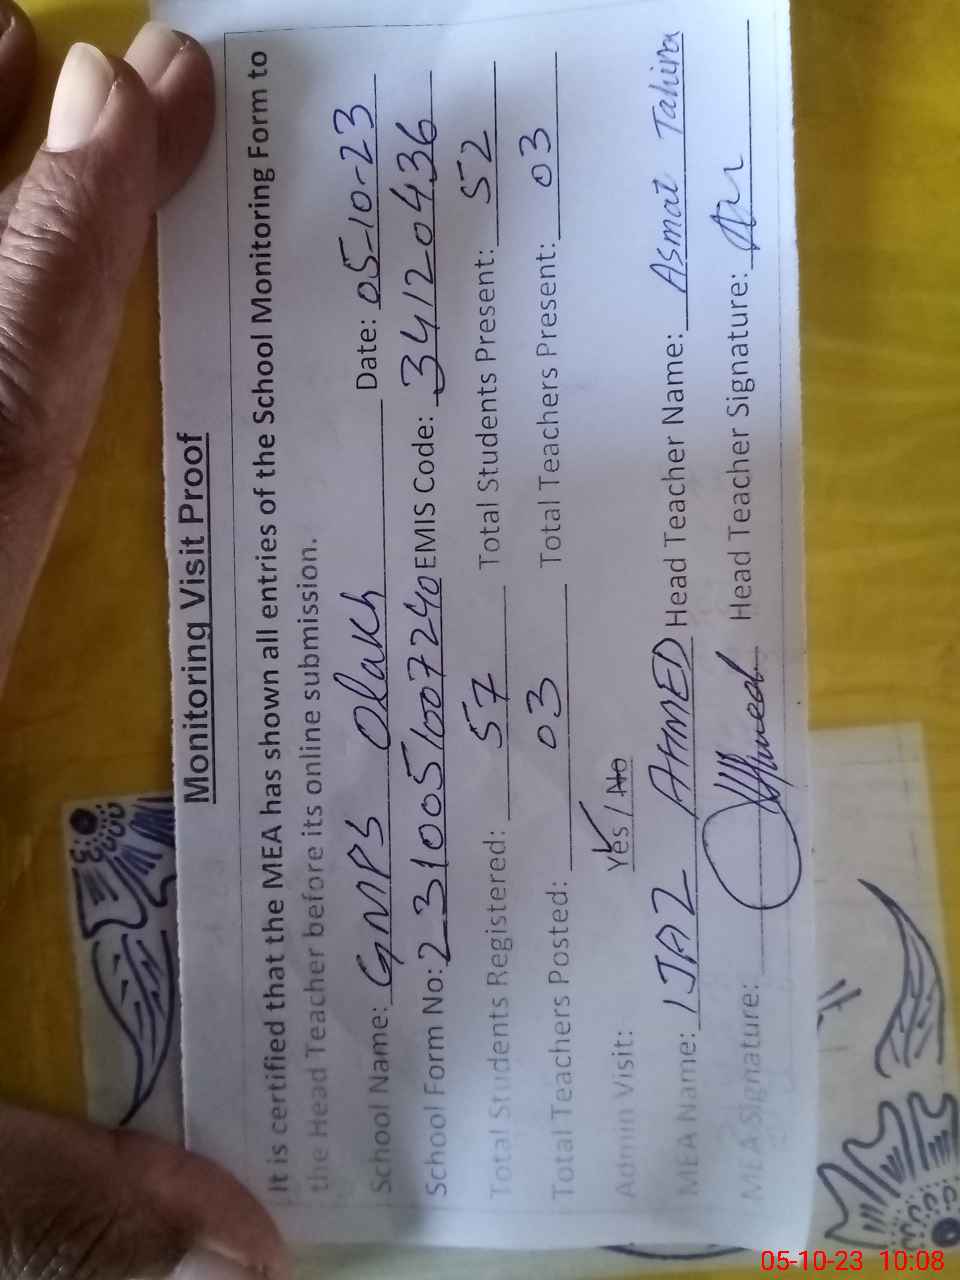 Monitoring Visit Proof
It is certified that the MEA has shown all entries of the School Monitoring Form to
the Head Teacher before its online submission.
School Name: GMPS Olakh Date: 05-10-23
School Form No: 2310051007240 EMIS Code: 34120436
Total Students Registered: 57 Total Students Present: 52
Total Teachers Posted: 03 Total Teachers Present: 03
Admin Visit: Yes / No
MEA Name: IJAZ AHMED Head Teacher Name: Asmat Tahira
MEA Signature: Ahmed Head Teacher Signature:
05-10-23 10:08